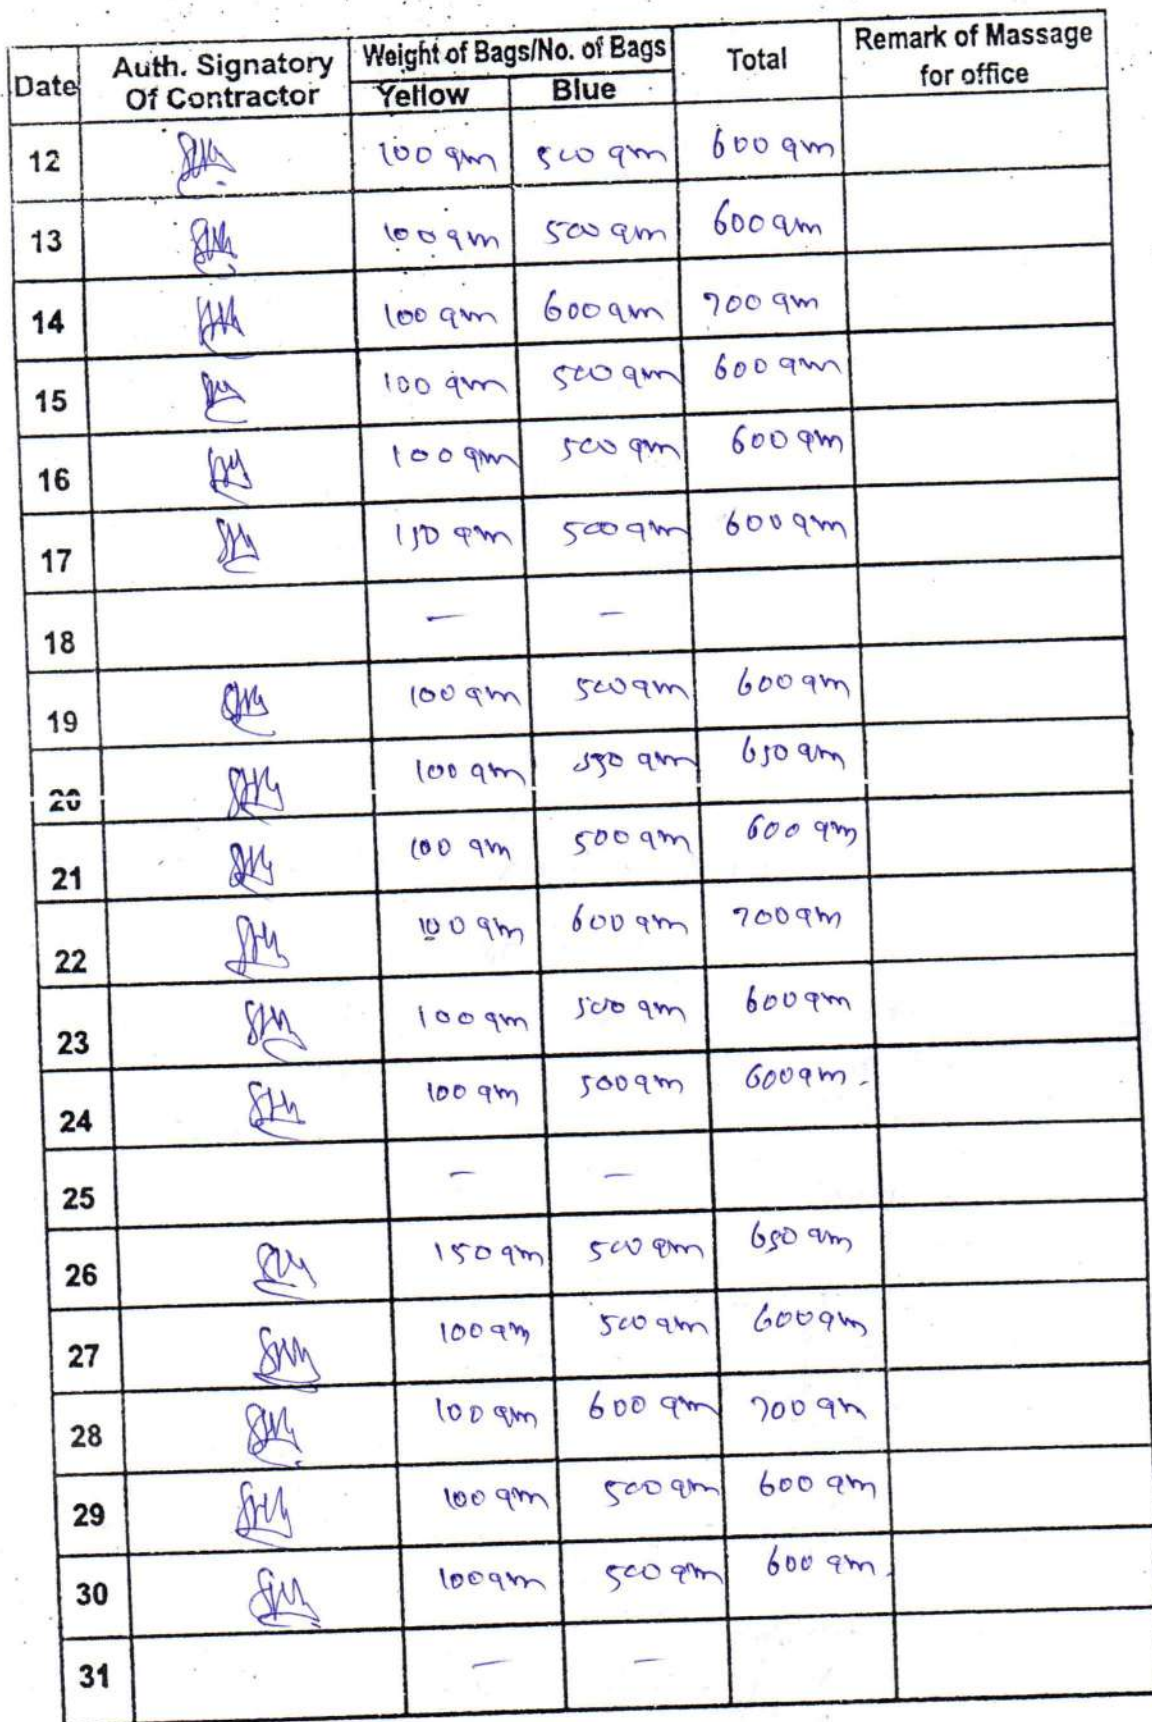 Date Auth. Signatory Of Contractor Weight of Bags/No. of Bags Total Remark of Massage for office
Yellow Blue
12 100 gm 500 gm 600 gm
13 100 gm 500 gm 600 gm
14 100 gm 600 gm 700 gm
15 100 gm 500 gm 600 gm
16 100 gm 500 gm 600 gm
17 150 gm 500 gm 600 gm
18 — —
19 100 gm 500 gm 600 gm
20 100 gm 550 gm 650 gm
21 100 gm 500 gm 600 gm
22 100 gm 600 gm 700 gm
23 100 gm 500 gm 600 gm
24 100 gm 500 gm 600 gm.
25 — —
26 150 gm 500 gm 650 gm
27 100 gm 500 gm 600 gm
28 100 gm 600 gm 700 gm
29 100 gm 500 gm 600 gm
30 100 gm 500 gm 600 gm.
31 — —